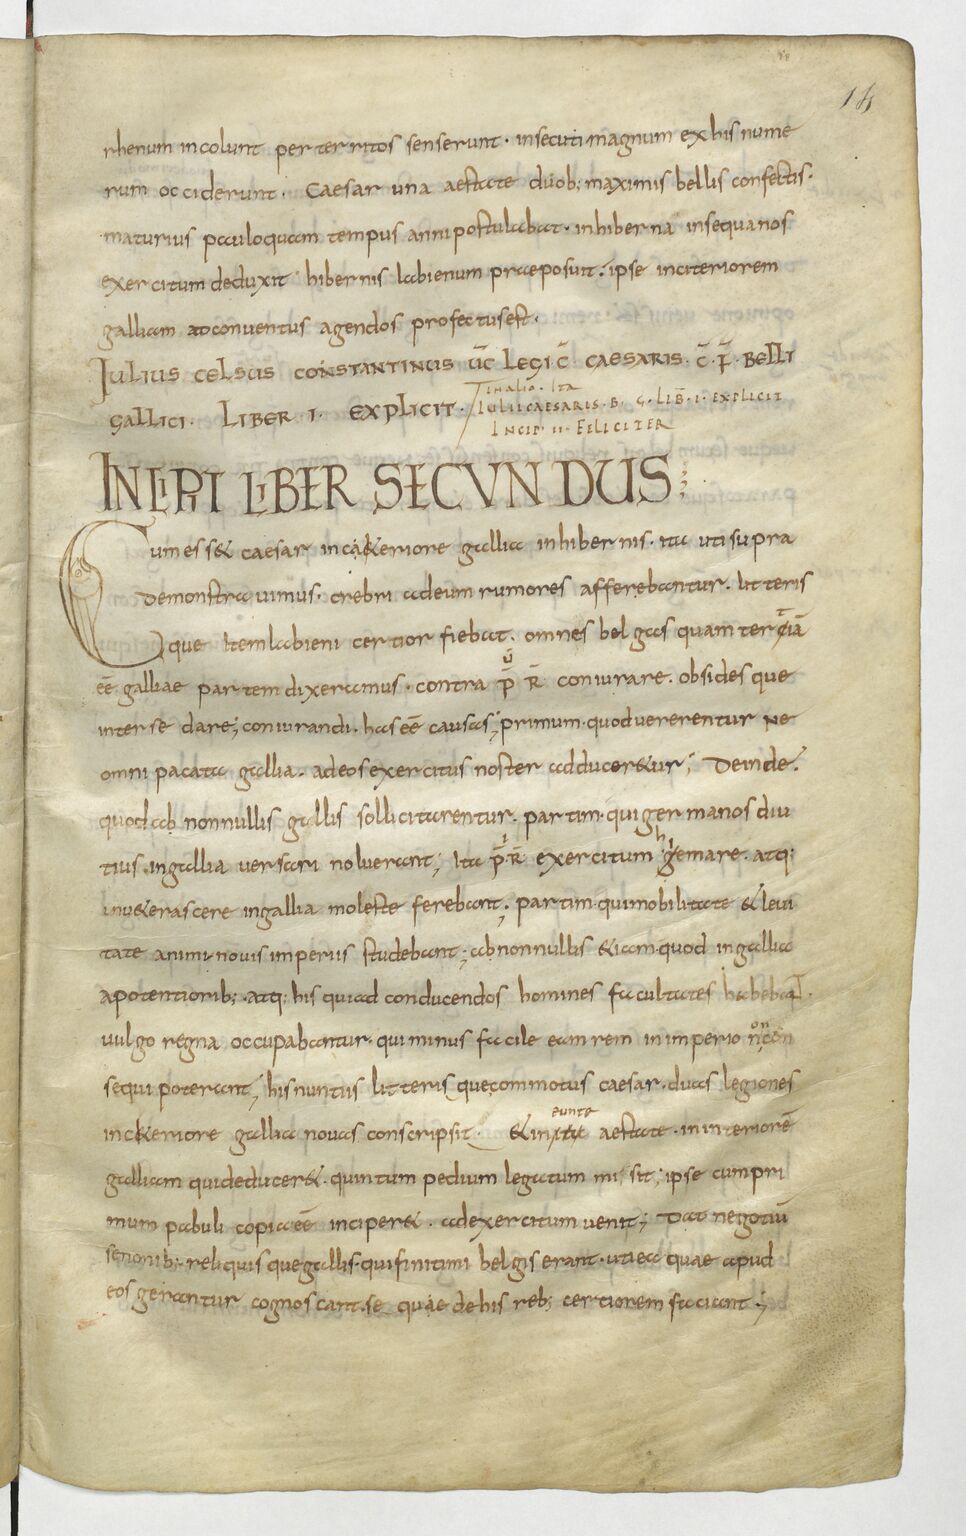 14
rhenum incolunt perterritos senserunt · insecuti magnum ex his nume
rum occiderunt · Caesar una aestate duob; maximis bellis confectis ·
maturius pauloquam tempus anni postulabat · in hiberna in sequanos
exercitum deduxit hibernis labienum praeposuit · ipse in citeriorem
galliam ad conventus agendos profectus est ·
IULIUS CELSUS CONSTANTINUS ṼC̃ LEGI C̃ CAESARIS · C̃ · P̃ · BELLI
GALLICI · LIBER I · EXPLICIT ·
In alio · Ita
IULII CAESARIS · B · G · LIB̃ · I · EXPLICIT
INCIP · II · FELICITER
INCIPIT LIBER SECUNDUS
Cum ess& caesar in citeriore gallia in hibernis · ita uti supra
demonstravimus · crebri ad eum rumores afferebantur · litteris
que item labieni certior fiebat · omnes belgas quam terciā
eē galliae partem dixeramus · contra p̄ R̄ coniurare · obsides que
inter se dare; coniurandi · has eē causas; primum · quod vererentur ne
omni pacata gallia · ad eos exercitus noster adducer&ur; Deinde ·
quod ab nonnullis gallis sollicitarentur · partim · qui germanos diu
tius in gallia versari noluerant; Ita p̄ · R̄ exercitum hiemare · atq;
inu&erascere in gallia moleste ferebant; partim · qui mobilitate & levi
tate animi · novis imperiis studebant; ab nonnullis &iam · quod in gallia
a potentiorib; · atq; his qui ad conducendos homines facultates habebaT ·
vulgo regna occupabantur · qui minus facile eam rem in imperio n̄ con
sequi poterant; his nuntiis litteris que commotus caesar · duas legiones
in c&eriore gallia novas conscripsit · & in eunte aestate · in interiorē
galliam qui deducer& · quintum pedium legatum misit; ipse cum pri
mum pabuli copia eē inciper& · ad exercitum venit; Dat negotiū
senonib; · reliquis que gallis · qui finitimi belgis erant · uti ea quae apud
eos gerantur cognoscant · se quae de his reb; certiorem faciant;